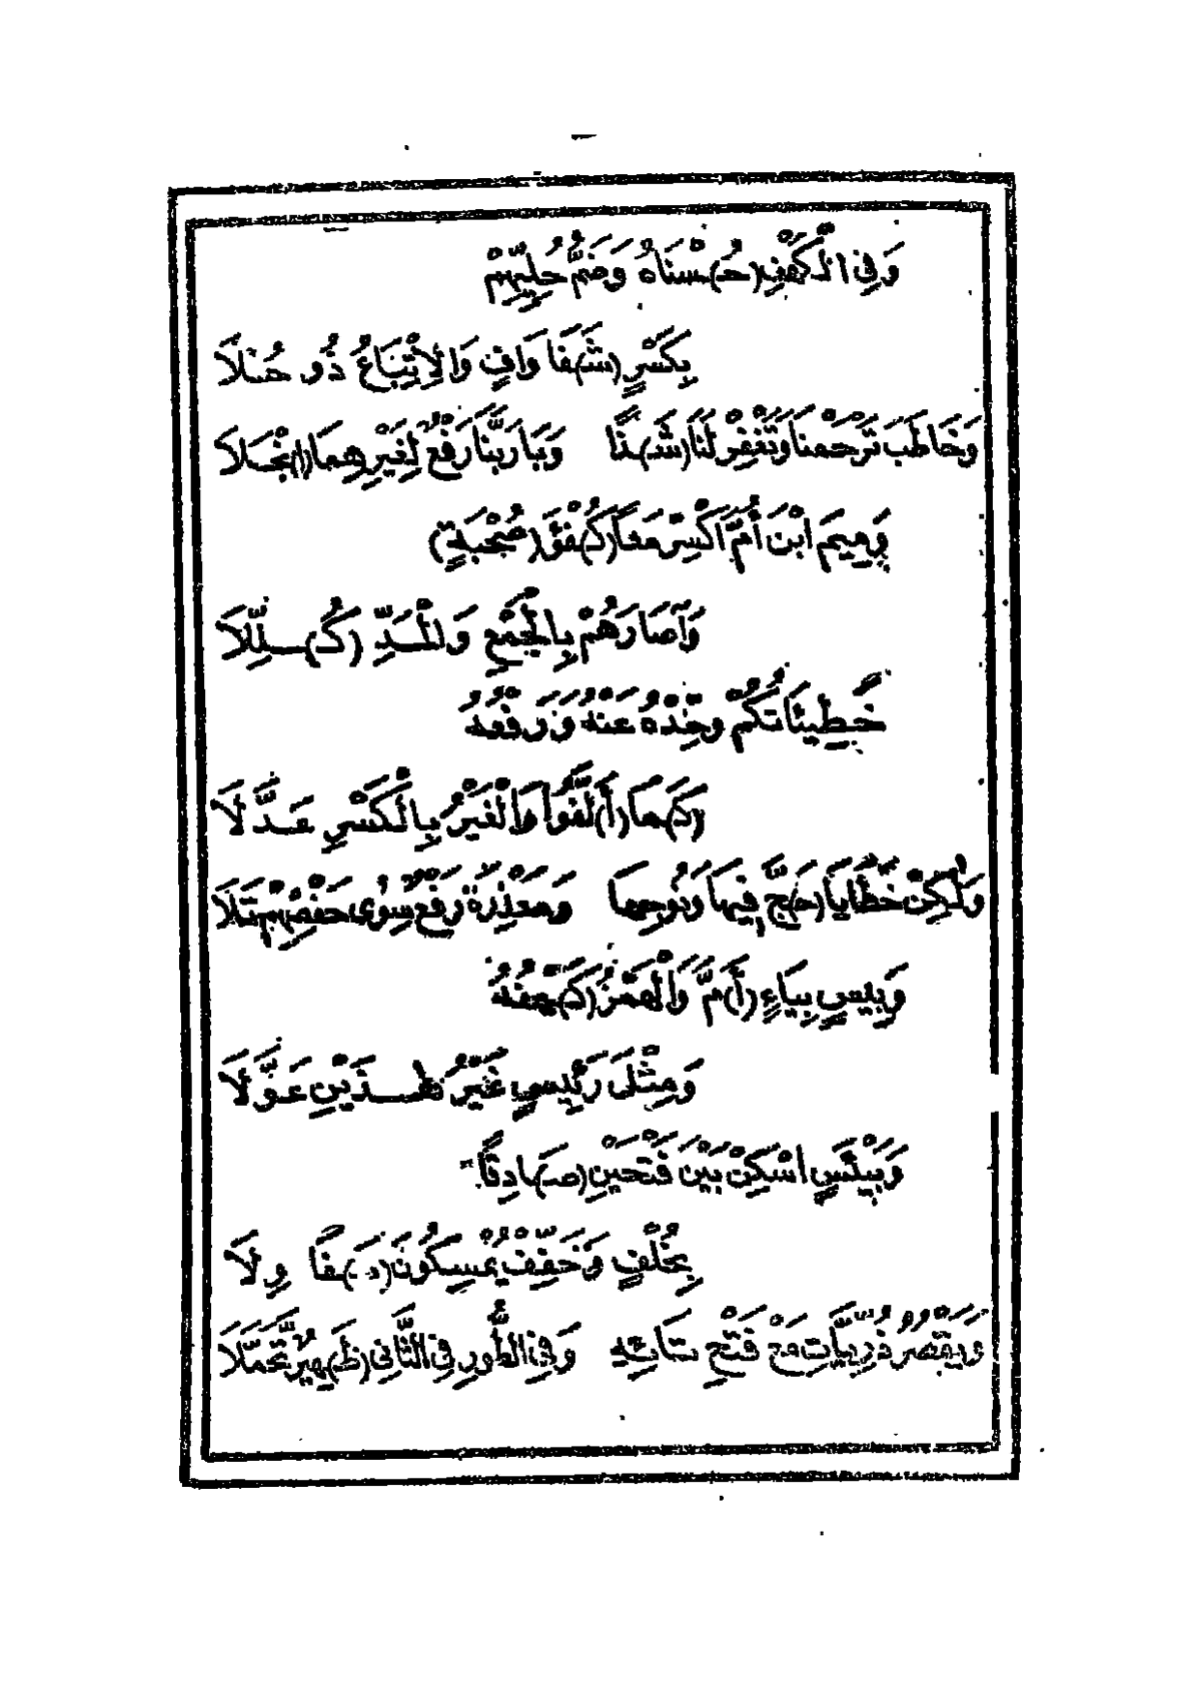 وَفِي الْكَهْفِ (حُـ)ـسْنَاهُ وَضَمُّ حُلِيِّهِمْ
بِكَسْرٍ (شَـ)ـفَا وَافٍ وَالِاتْبَاعُ ذُو حُلَا
وَخَاطَبَ تَرْحَمْنَا وَتَغْفِرْ لَنَا (شَـ)ـذًا وَبَا رَبَّنَا رَفْعٌ لِغَيْرِهِمَا (ا)نْجَلَا
وَمِيمَ ابْنَ أُمَّ اكْسِرْ مَعًا (كُـ)ـفْؤَ (صُحْبَةٍ)
وَآصَارَهُمْ بِالْجَمْعِ وَالْمَدِّ (كُـ)ـلِّلَا
خَطِيئَاتُكُمْ وَحِّدْهُ عَنْهُ وَرَفْعُهُ
(كَـ)ـمَا (أَ)لَّفُوا وَالْغَيْرُ بِالْكَسْرِ عَدَّلَا
وَلَكِنْ خَطَايَا (حَـ)ـجَّ فِيهَا وَنُوحِهَا وَمَعْذِرَةً رَفْعٌ سِوَى حَفْصِهِمْ تَلَا
وَبِيسٍ بِيَاءٍ (أَ)مَّ وَالْهَمْزُ (كَـ)ـهْفُهُ
وَمِثْلَ رَئِيسٍ غَيْرُ هَـذَيْنِ عَوَّلَا
وَبَيْئَسٍ اسْكِنْ بَيْنَ فَتْحَيْنِ (صَـ)ـادِقًا
بِخُلْفٍ وَخَفِّفْ يُمْسِكُونَ (صَـ)ـفَا وِلَا
وَيَقْصُرُ ذُرِّيَّاتِ مَعْ فَتْحِ تَائِهِ وَفِي الطُّورِ فِي الثَّانِي (ظَـ)ـهِيرٌ تَحَمَّلَا